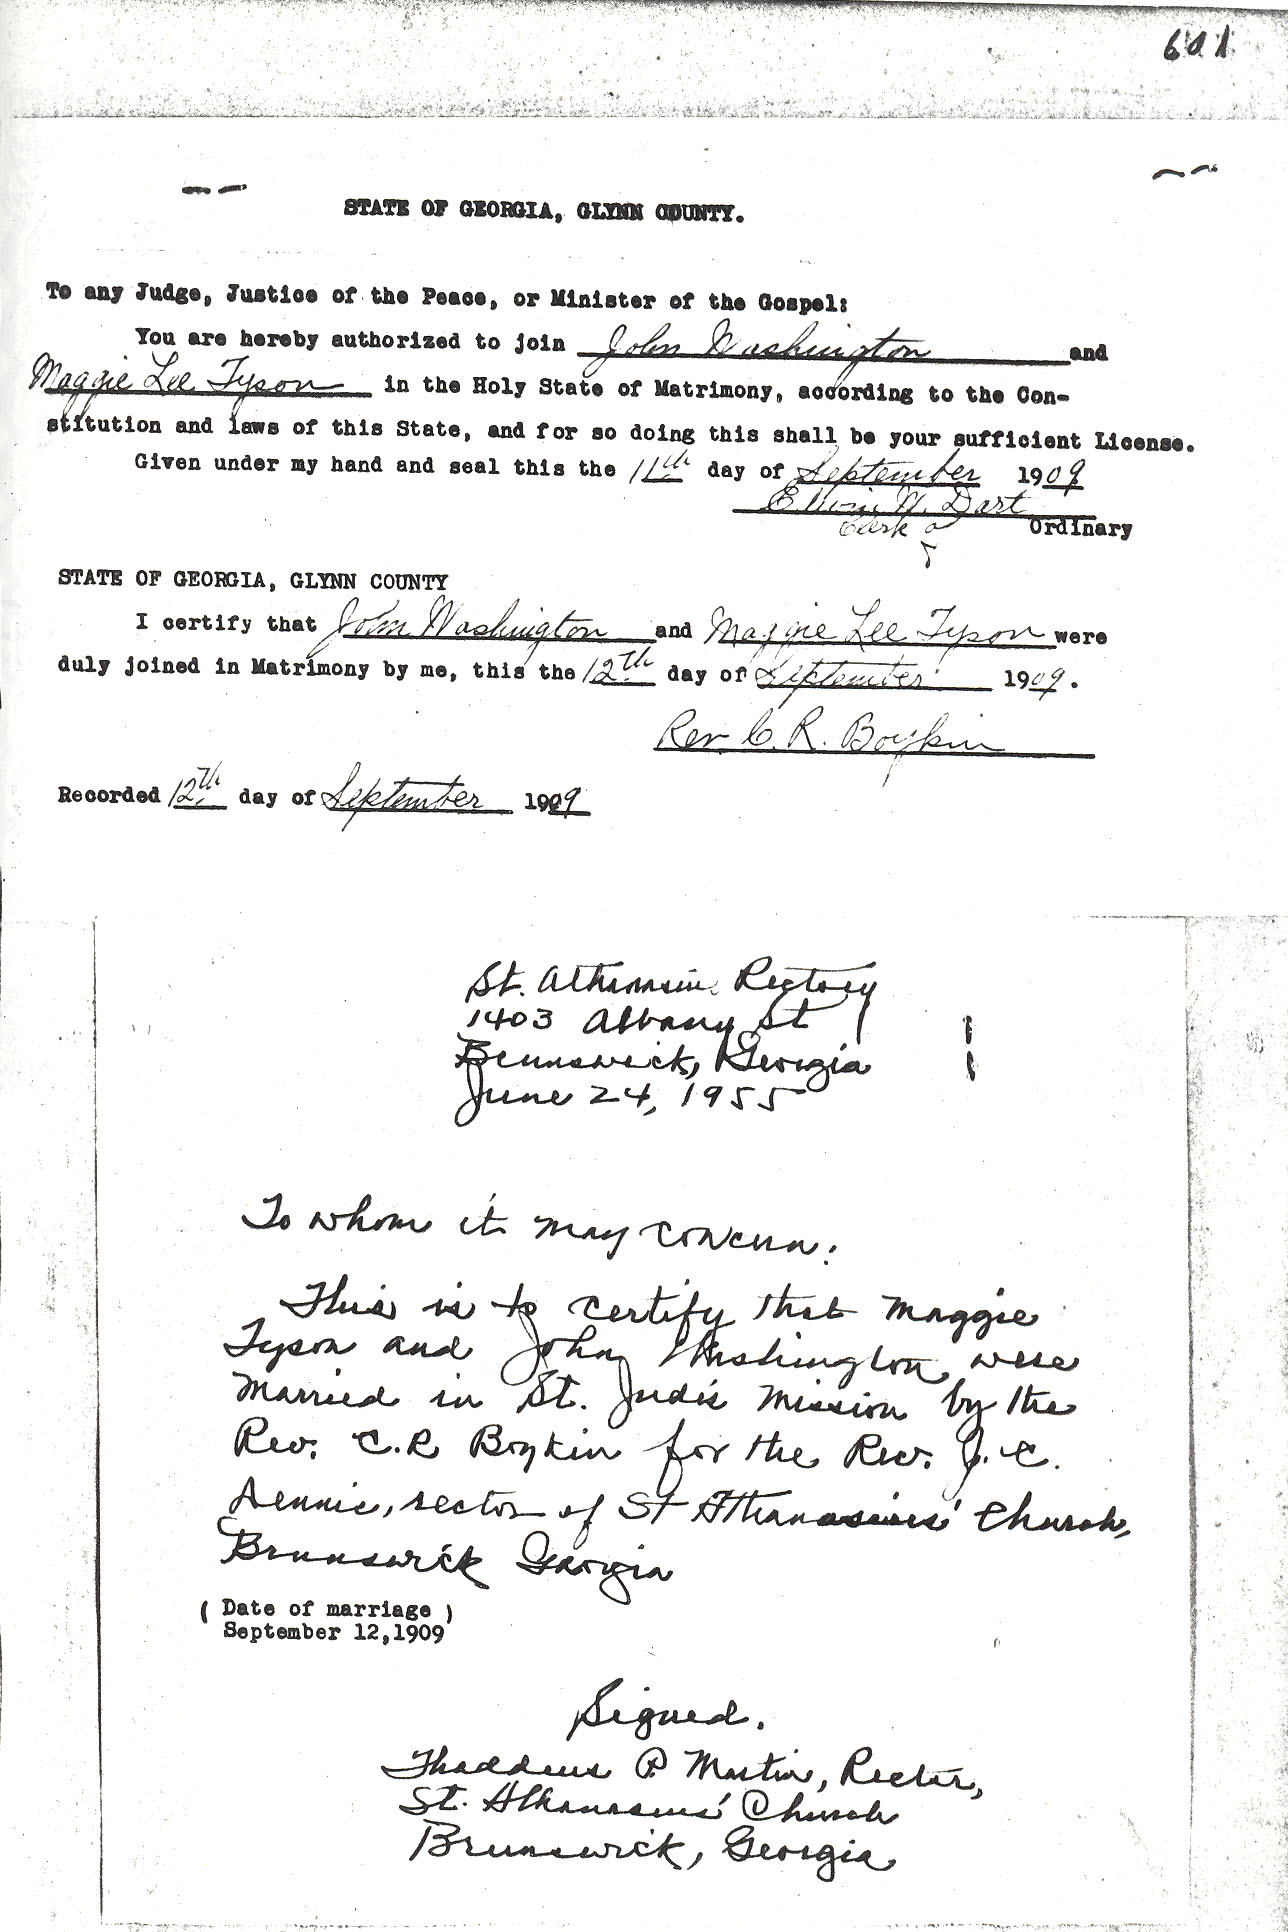 601
STATE OF GEORGIA, GLYNN COUNTY.
To any Judge, Justice of the Peace, or Minister of the Gospel:
You are hereby authorized to join John Washington and
Maggie Lee Tyson in the Holy State of Matrimony, according to the Con-
stitution and laws of this State, and for so doing this shall be your sufficient License.
Given under my hand and seal this the 11th day of September 1909
Edwin W. Dart
Clerk Ordinary
STATE OF GEORGIA, GLYNN COUNTY
I certify that John Washington and Maggie Lee Tyson were
duly joined in Matrimony by me, this the 12th day of September 1909.
Rev. C. R. Boykin
Recorded 12th day of September 1909
St. Athanasius Rectory
1403 Albany St
Brunswick, Georgia
June 24, 1955
To whom it may concern:
This is to certify that Maggie
Tyson and John Washington were
married in St. Jude's Mission by the
Rev. C.R Boykin for the Rev. J.C.
Dennis, rector of St Athanasius' Church,
Brunswick Georgia
( Date of marriage )
September 12,1909
Signed.
Thaddeus P. Martin, Rector,
St. Athanasius' Church
Brunswick, Georgia